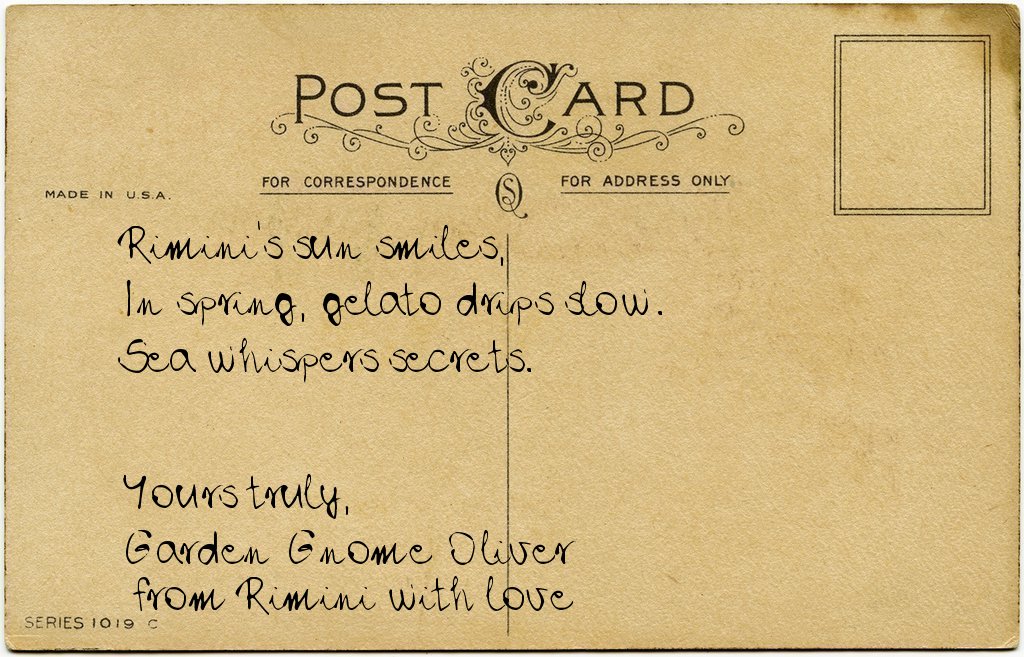 POST CARD
FOR CORRESPONDENCE
FOR ADDRESS ONLY
MADE IN U.S.A.
Rimini's sun smiles,
In spring, gelato drips slow.
Sea whispers secrets.
Yours truly,
Garden Gnome Oliver
from Rimini with love
SERIES 1019 C